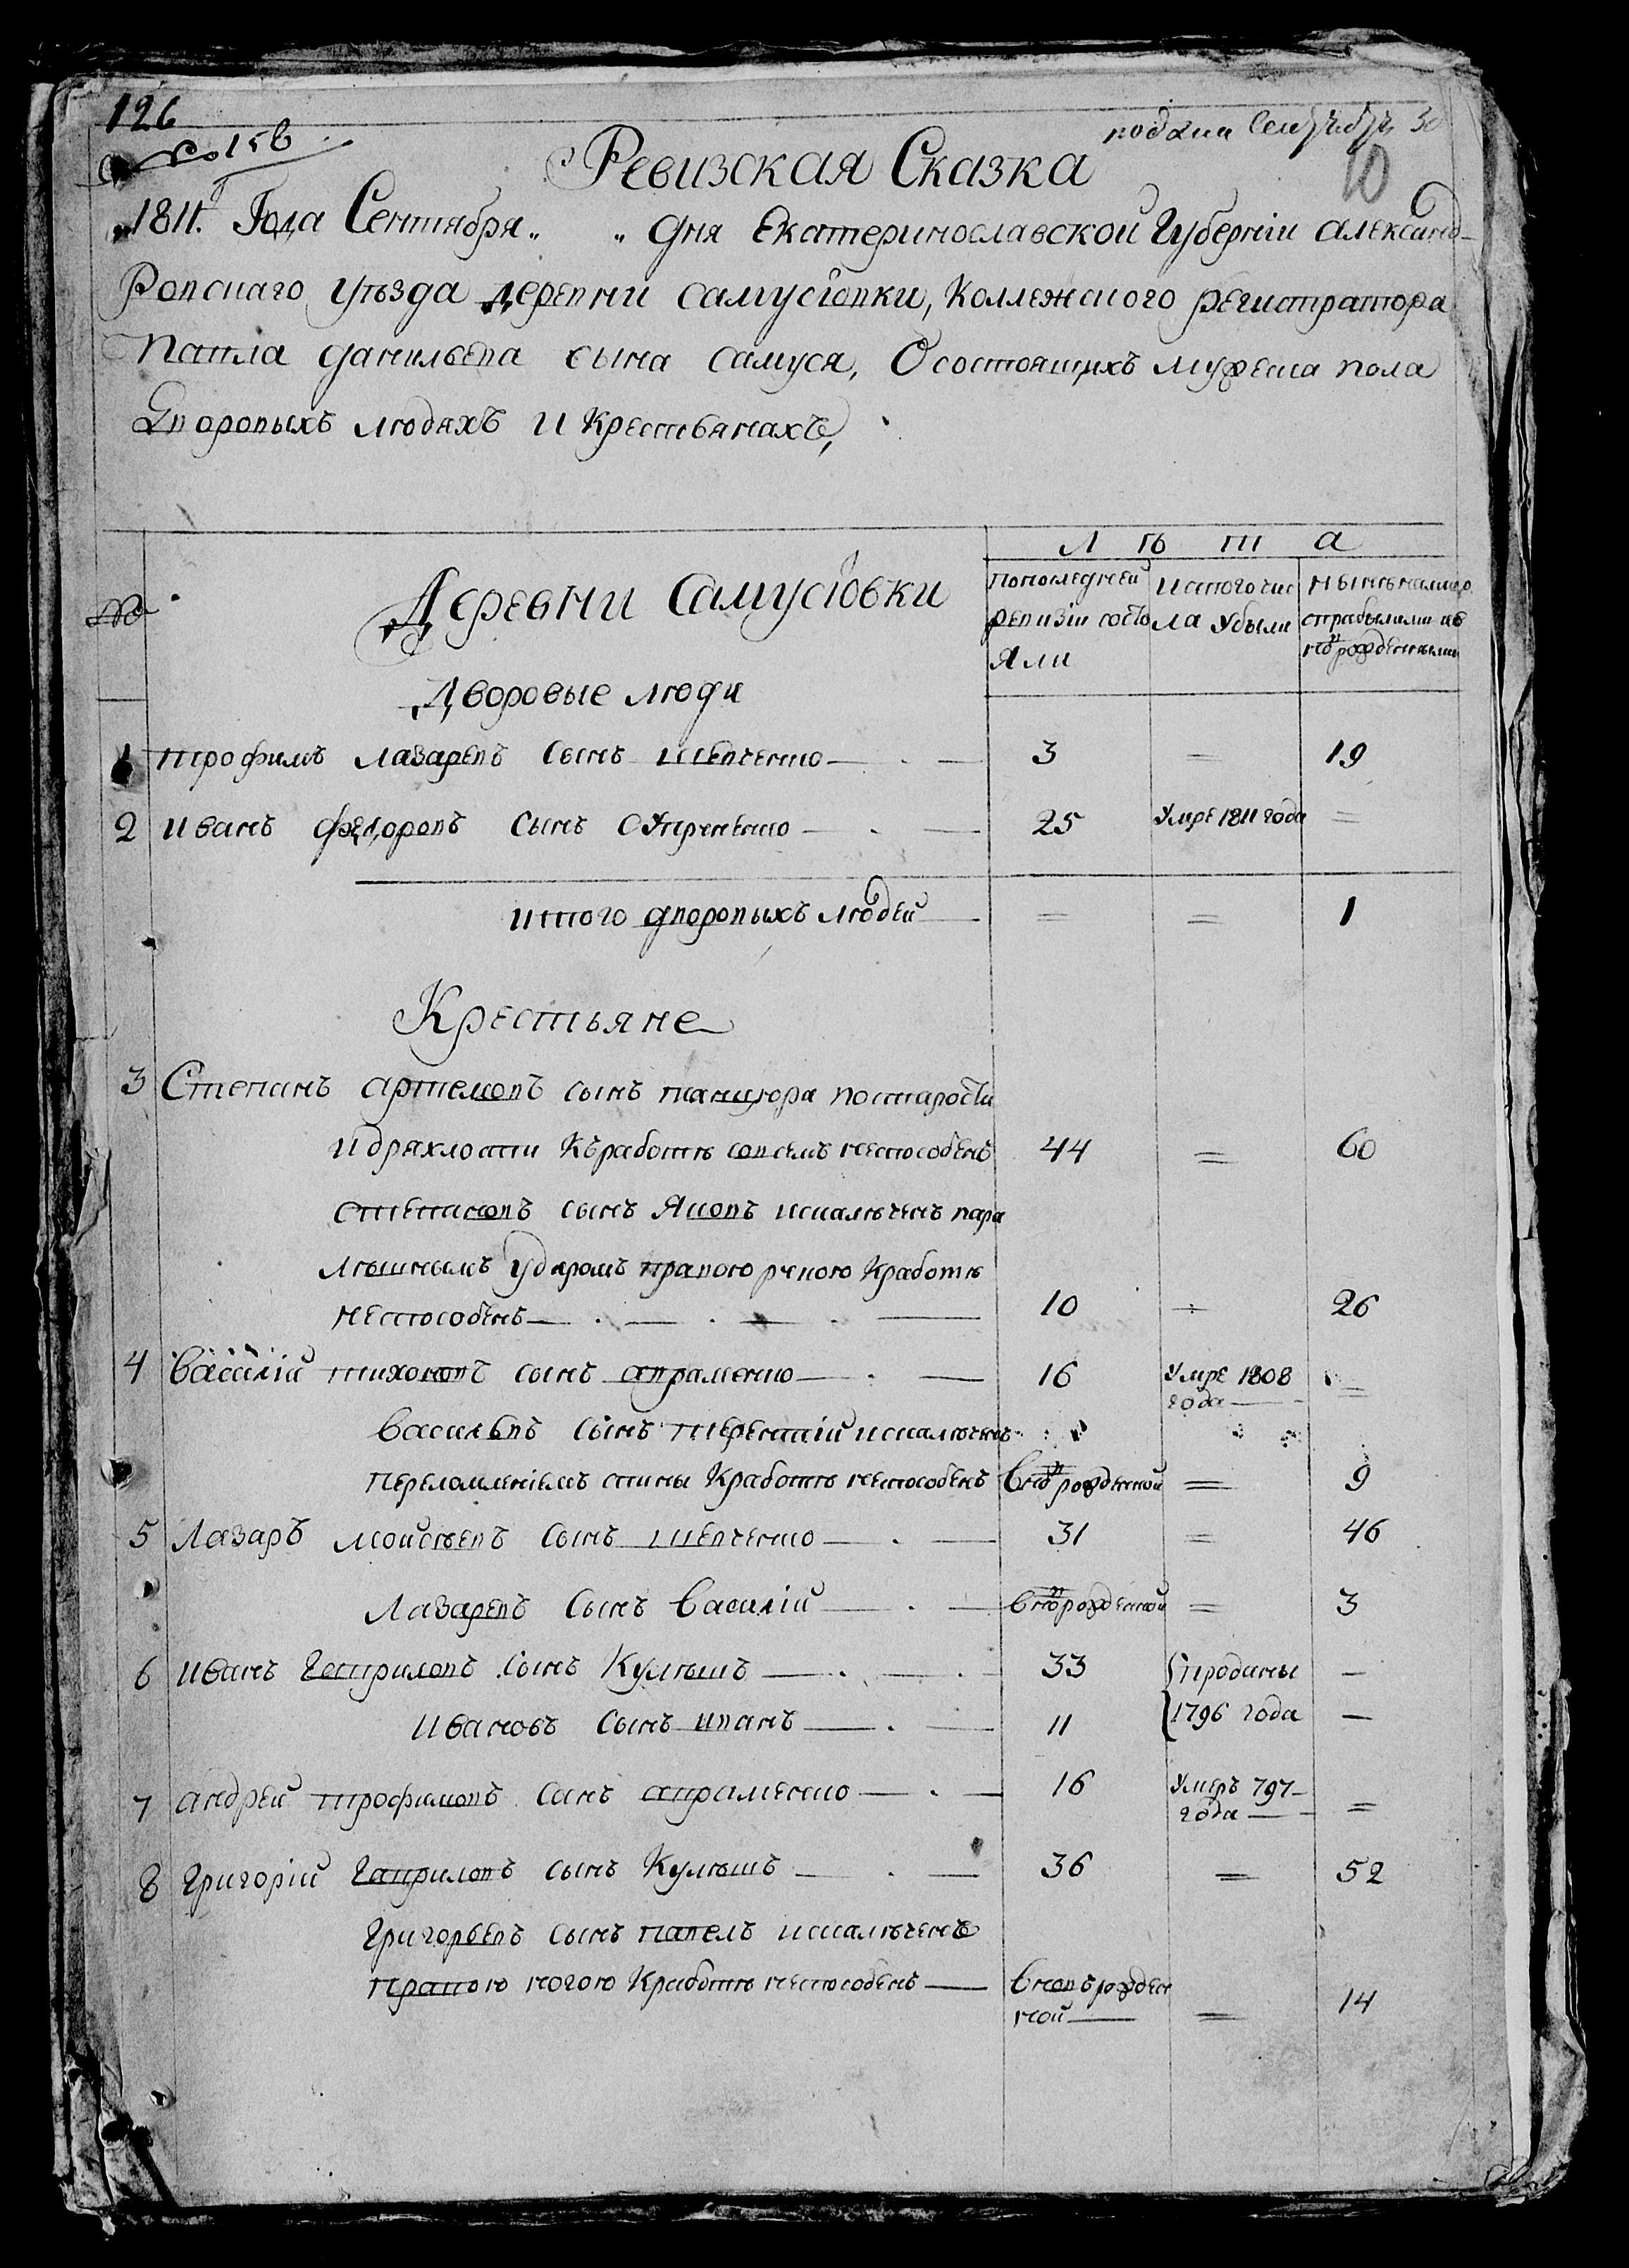 126
подана Сентября 30
10
Ревизская Сказка
1811. Года Сентября „ „ дня Екатеринославской Губерніи Александ-
ровскаго уѣзда деревни Самусіовки, Коллежского регистратора
Павла данильева сына самуся, О состоящихъ мужеска пола
Дворовыхъ людяхъ и Крестьянахъ,
Л ѣ т а
№
Деревни Самусіовки
по последней
ревизіи состо
яли
Ис того чис
ла убыли
Нынѣ налицо
с прибылими и в
новъ рожденными
Дворовые люди
1 Трофимъ Лазаревъ Сынъ Шевченко — . — 3 = 19
2 Иванъ Федоровъ Сынъ — . — 25 Умре 1811 года =
Итого дворовыхъ людей = = 1
Крестьяне
3 Степанъ Артемовъ сынъ по старости
и дряхлости Къ работѣ совсемъ неспособенъ 44 = 60
Степановъ сынъ Яковъ искалѣченъ пара
личнымъ ударомъ правою рукою К работѣ
неспособенъ — . — . — . — 10 = 26
4 Василій Тихоновъ сынъ Авраменко — . — 16 Умре 1808
года — =
Васильевъ Сынъ Терентій искалѣченъ
переломленіемъ спины К работѣ неспособенъ вновь рожденной = 9
5 Лазаръ Мойсѣевъ Сынъ Шевченко — . — 31 = 46
Лазаревъ Сынъ Василій — . — вновь рожденной = 3
6 Иванъ Гавриловъ Сынъ Кулѣшъ — . — . 33 проданы —
Ивановъ Сынъ Иванъ — . — 11 1796 года —
7 Андрей Трофимовъ Сынъ Авраменко — . — 16 Умеръ 797
года — =
8 Григорій Гавриловъ сынъ Кулѣшъ — . — 36 = 52
Григорьевъ сынъ Павелъ искалѣченъ
правою ногою К работѣ неспособенъ — вновъ рожден
ной — = 14